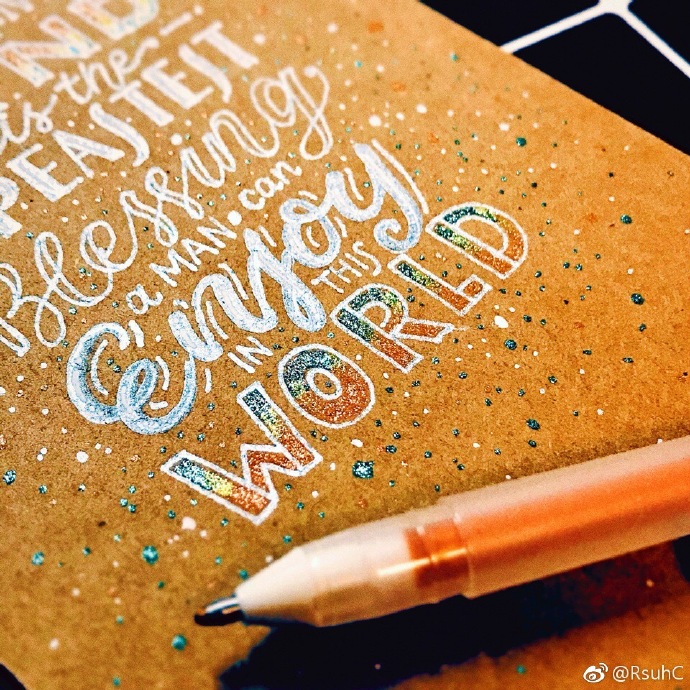 ND
is the
Blessing
a MAN can
Enjoy
IN THIS
WORLD
@RsuhC